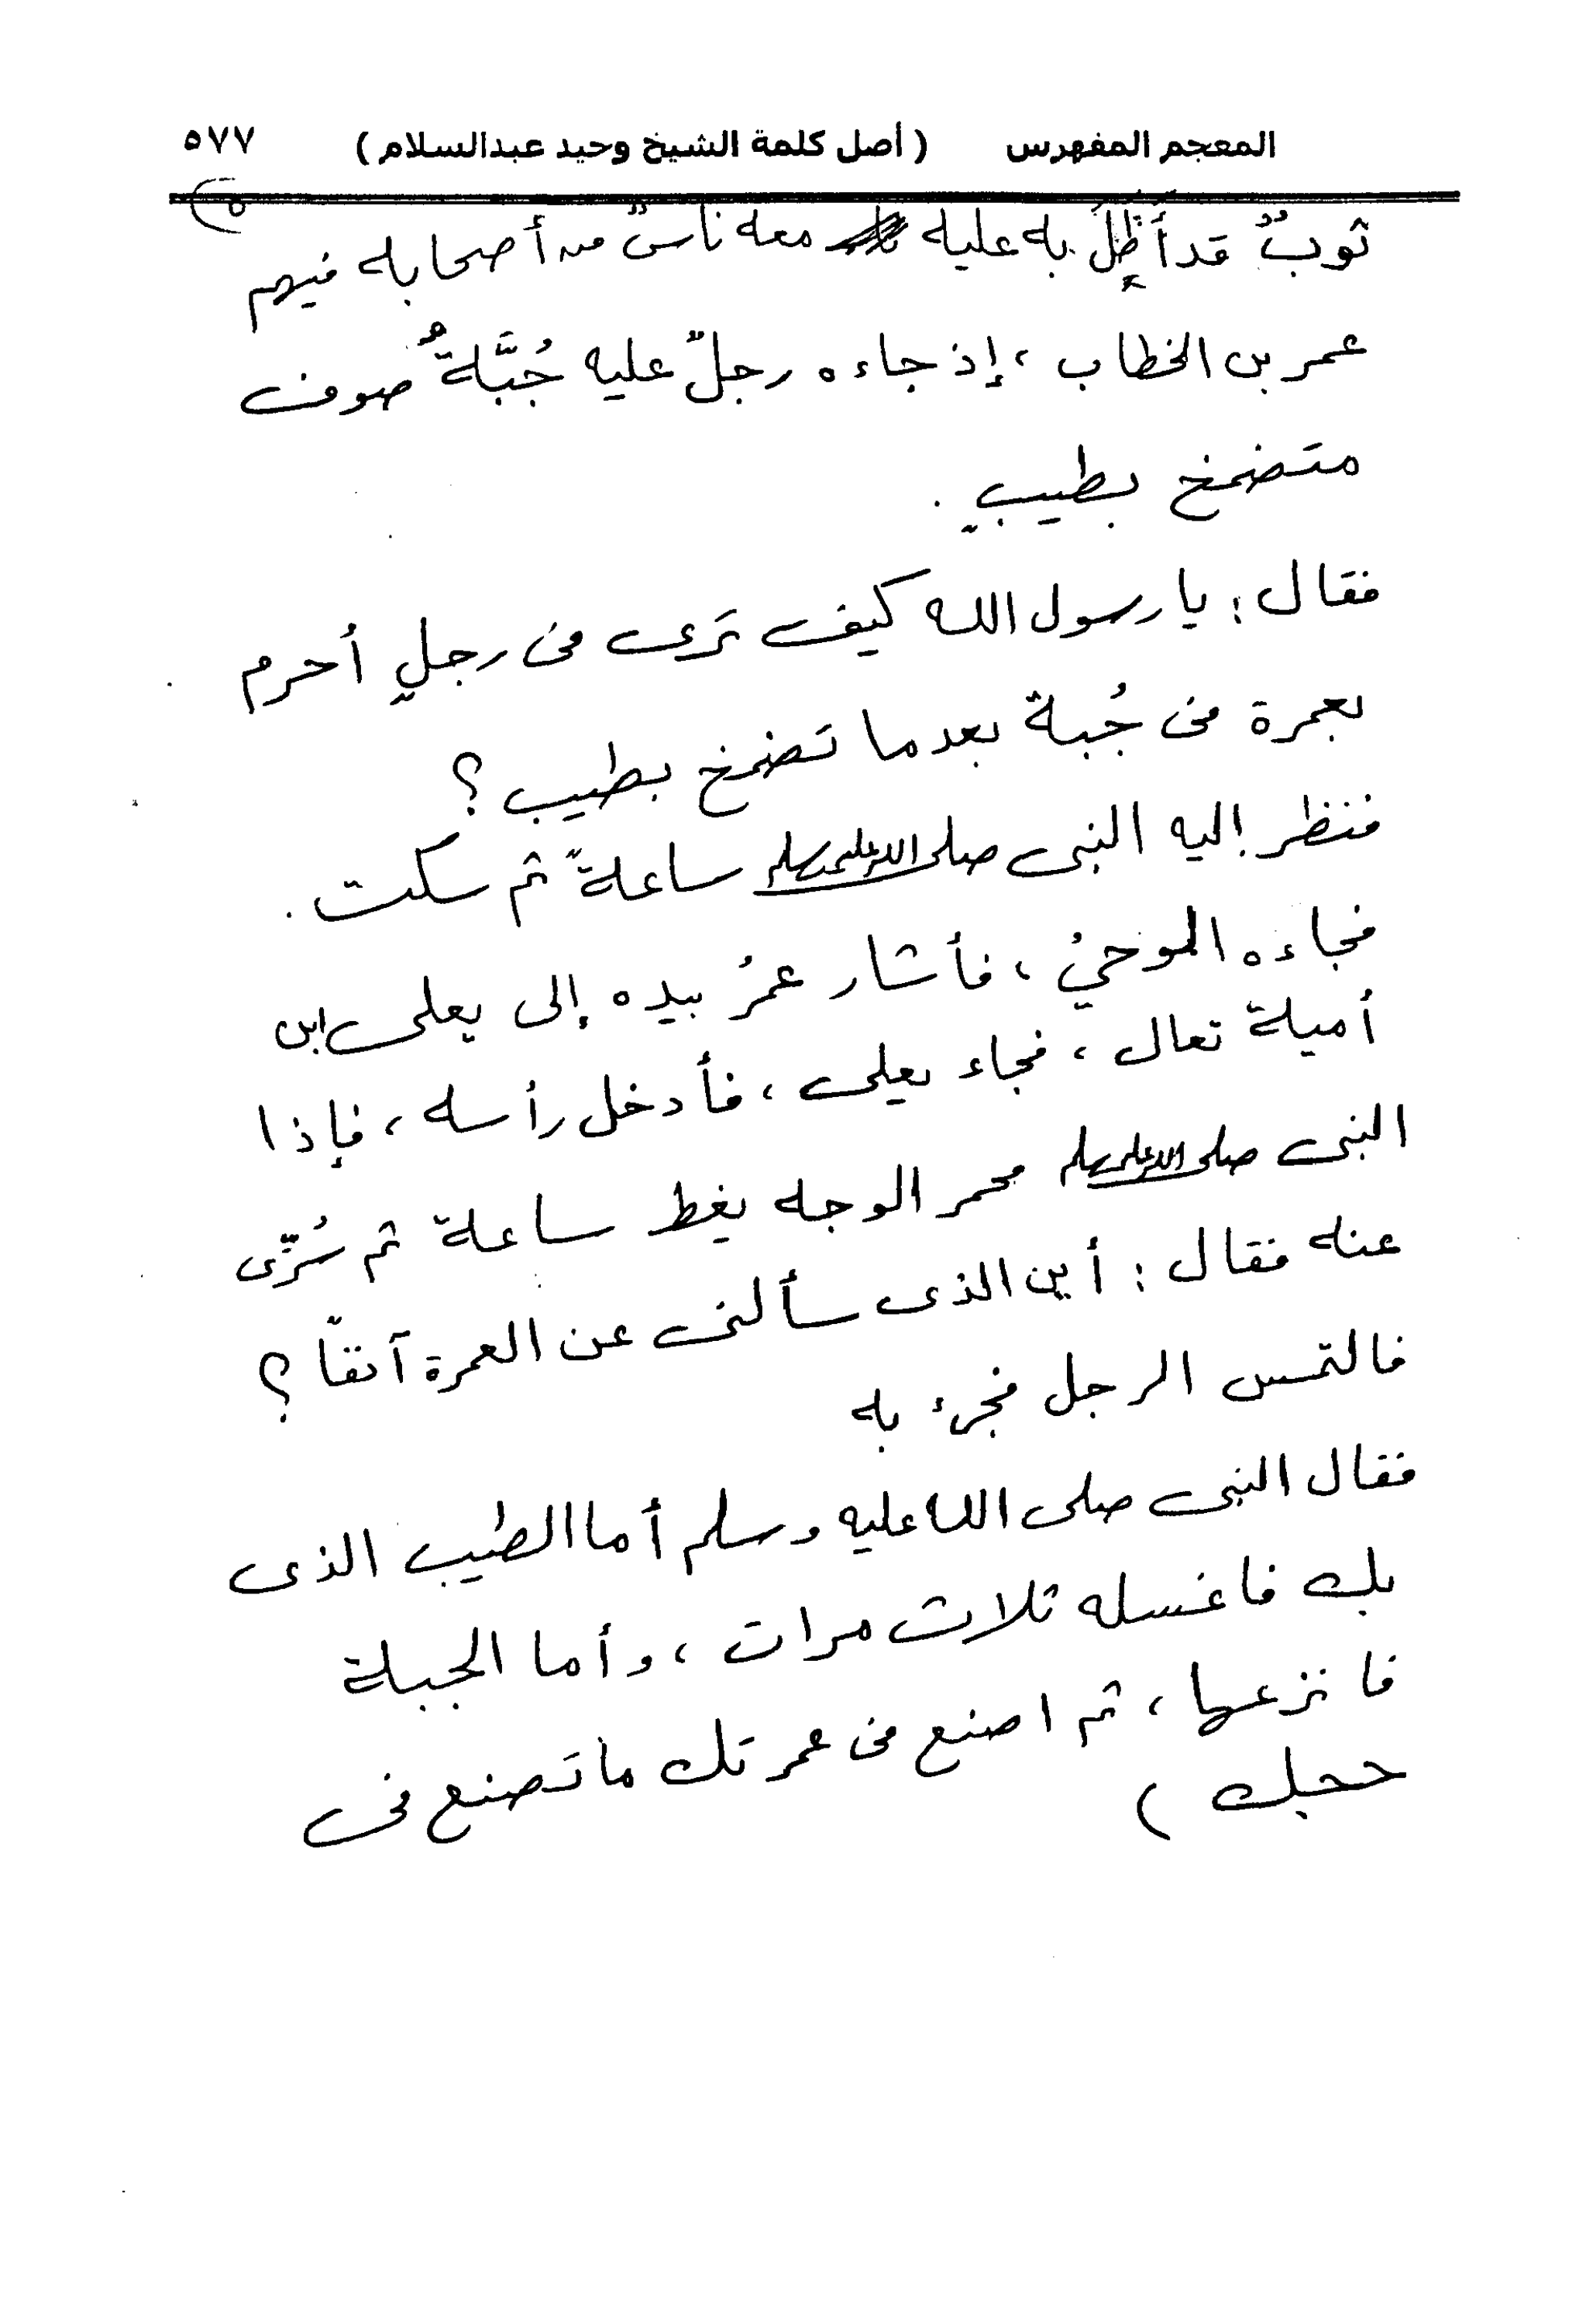 المعجم المفهرس ( أصل كلمة الشيخ وحيد عبدالسلام ) ٥٧٧
٥
ثوبٌ قد أُظِلَّ به عليه معه ناسٌ من أصحابه فيهم
عمر بن الخطاب ، إذ جاءه رجلٌ عليه جُبَّةُ صوف
متضمخ بطيبٍ .
فقال : يا رسول الله كيف تَرى فى رجلٍ أحرم
بعمرة فى جُبة بعد ما تضمخ بطيب ؟
فنظر إليه النبى صلى الله عليه وسلم ساعةً ثم سكت .
فجاءه الوحيُ ، فأشار عمرُ بيده إلى يعلى ابن
أمية تعال ، فجاء يعلى ، فأدخل رأسه ، فإذا
النبى صلى الله عليه وسلم محمر الوجه يغط ساعة ثم سُرِّى
عنه فقال : أين الذى سألنى عن العمرة آنفًا ؟
فالتمس الرجل فجىء به
فقال النبى صلى الله عليه وسلم أما الطيب الذى
بك فاغسله ثلاث مرات ، وأما الجبة
فانزعها ، ثم اصنع فى عمرتك ما تصنع فى
حجك )